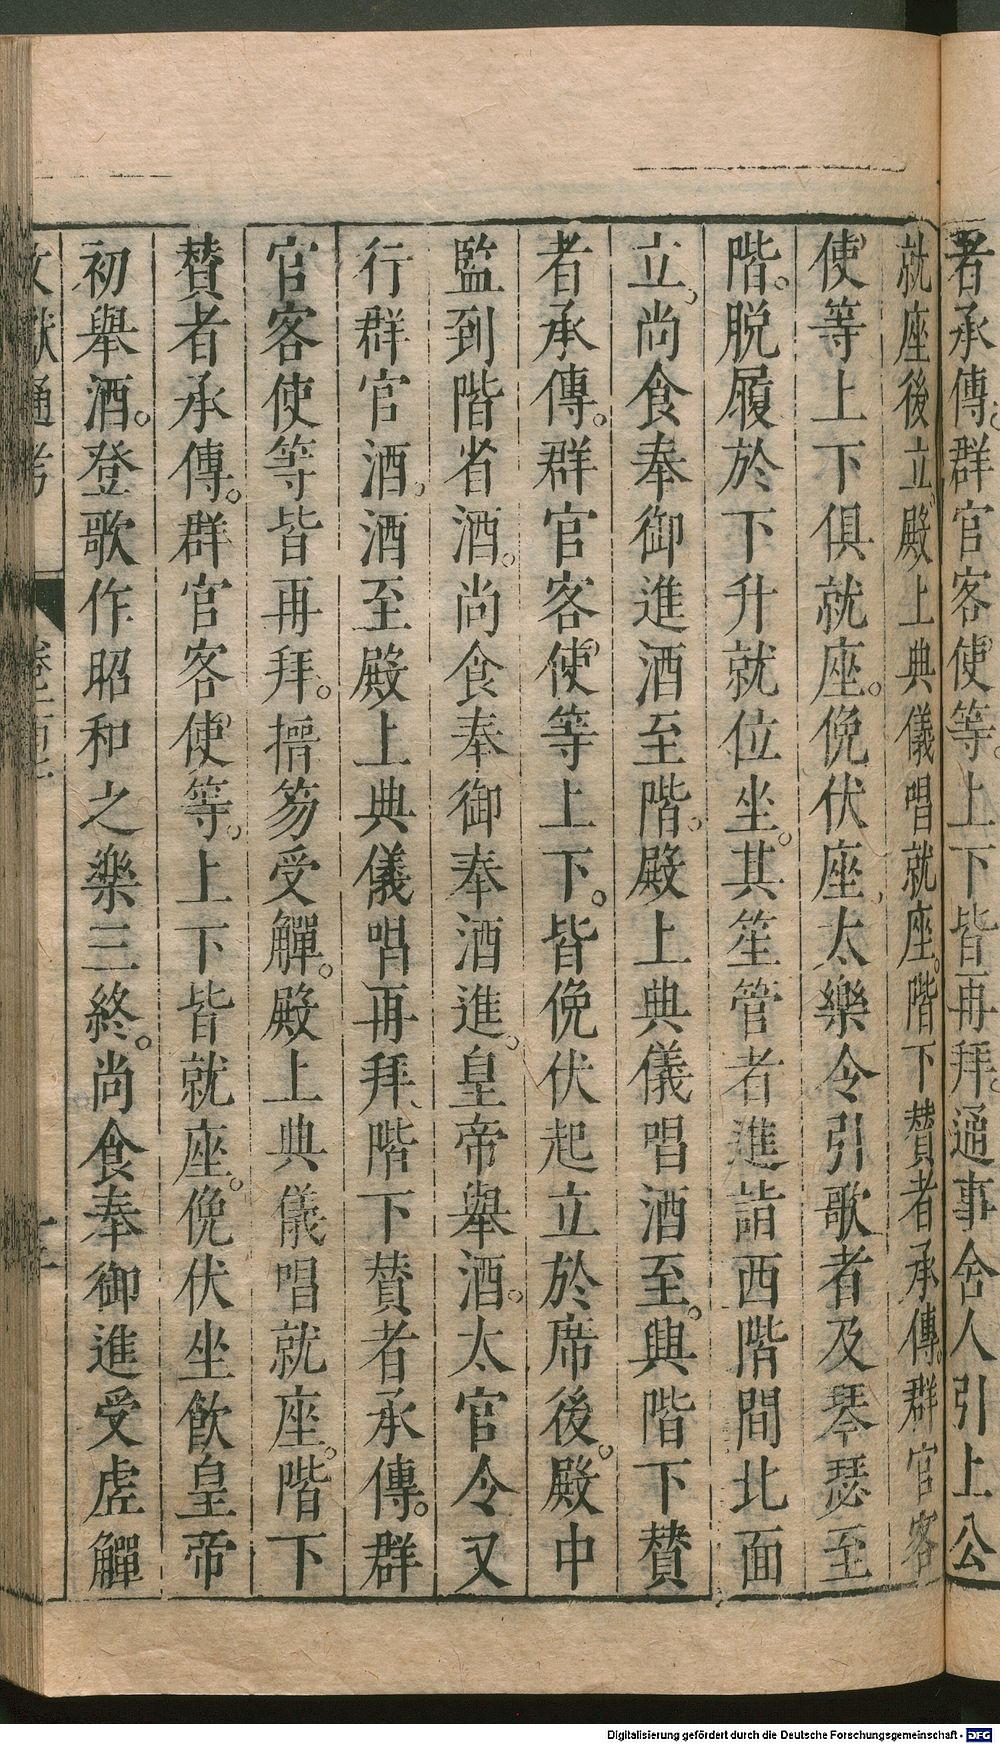 者承傳。群官客使等。上下皆再拜。通事舍人引上公
就座後立。殿上典儀唱就座。階下贊者承傳。群官客
使等上下俱就座。俛伏座、太樂令引歌者及琴瑟至
階。脱履於下升就位坐。其笙管者進詣西階間北面
立。尚食奉御進酒至階。殿上典儀唱酒至。興階下贊
者承傳。群官客使等上下。皆俛伏起立於席後。殿中
監到階省酒。尚食奉御奉酒進。皇帝舉酒。太官令又
行群官酒、酒至殿上典儀唱再拜、階下贊者承傳。群
官客使等皆再拜。搢笏受觶。殿上典儀唱就座。階下
贊者承傳。群官客使等。上下皆就座。俛伏坐飲皇帝
初舉酒。登歌作昭和之樂三終。尚食奉御進受虛觶
文獻通考
Digitalisierung gefördert durch die Deutsche Forschungsgemeinschaft - DFG